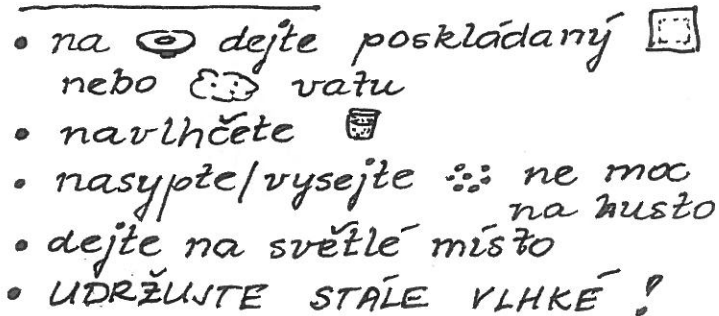 • na dejte poskládaný
nebo vatu
• navlhčete
• nasypte/vysejte ne moc
na husto
• dejte na světlé místo
• UDRŽUJTE STÁLE VLHKÉ !